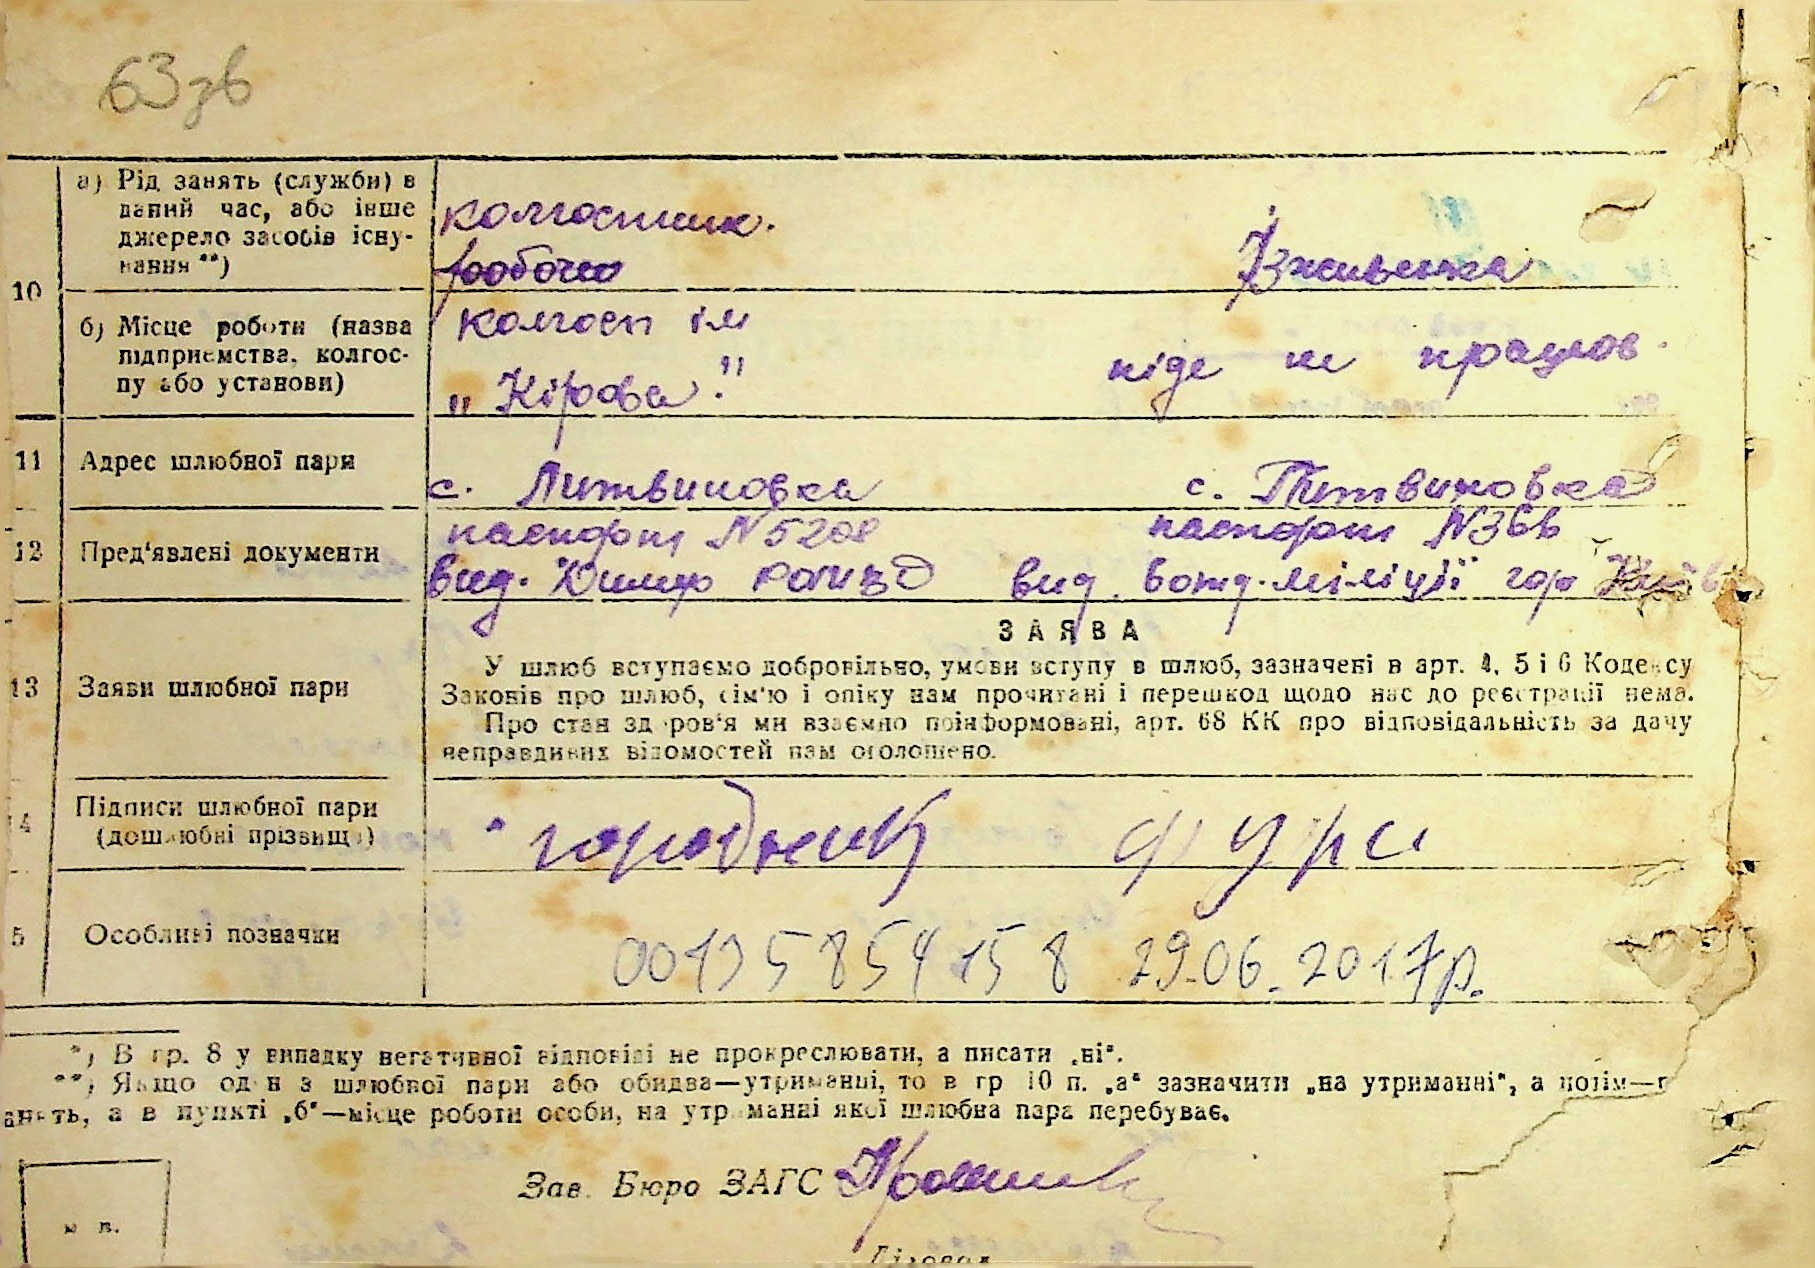 63зв
а) Рід занять (служби) в
даний час, або інше
джерело засобів існу-
вання **)
колгоспник.
робочий
Іживенка
10
б) Місце роботи (назва
підприємства, колгос-
пу або установи)
колгосп ім
„Кірова."
ніде не працюв.
11 Адрес шлюбної пари
с. Литвиновка
с. Литвиновка
12 Пред'явлені документи
паспорт N 5208
паспорт N 366
вид. Димер
вид. 6 отд. міліції гор Київ
13 Заяви шлюбної пари
ЗАЯВА
У шлюб вступаємо добровільно, умови вступу в шлюб, зазначені в арт. 4, 5 і 6 Кодексу
Законів про шлюб, сім'ю і опіку нам прочитані і перешкод щодо нас до реєстрації нема.
Про стан здоров'я ми взаємно поінформовані, арт. 68 КК про відповідальність за дачу
неправдивих відомостей нам оголошено.
14 Підписи шлюбної пари
(дошлюбні прізвища)
Городник Фурс
5 Особливі позначки
00135854158 29.06.2017р.
*) В гр. 8 у випадку негативної відповіді не прокреслювати, а писати „ні".
**) Якщо один з шлюбної пари або обидва—утриманці, то в гр 10 п. „а" зазначити „на утриманні", а потім—
ать, а в пункті „б"—місце роботи особи, на утриманні якої шлюбна пара перебуває.
Зав. Бюро ЗАГС
м п.
Діловод